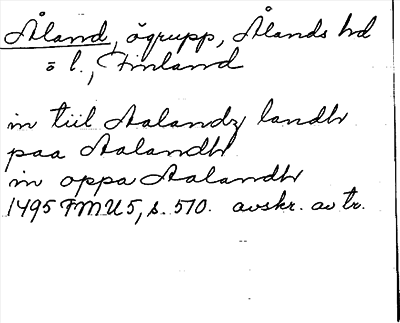 Åland, ögrupp, Ålands hd
o l., Finland
in tiil Aalandz landh
paa Aalandh
in oppa Aalandh
1495 FMU 5, s. 570. avskr. av tr.